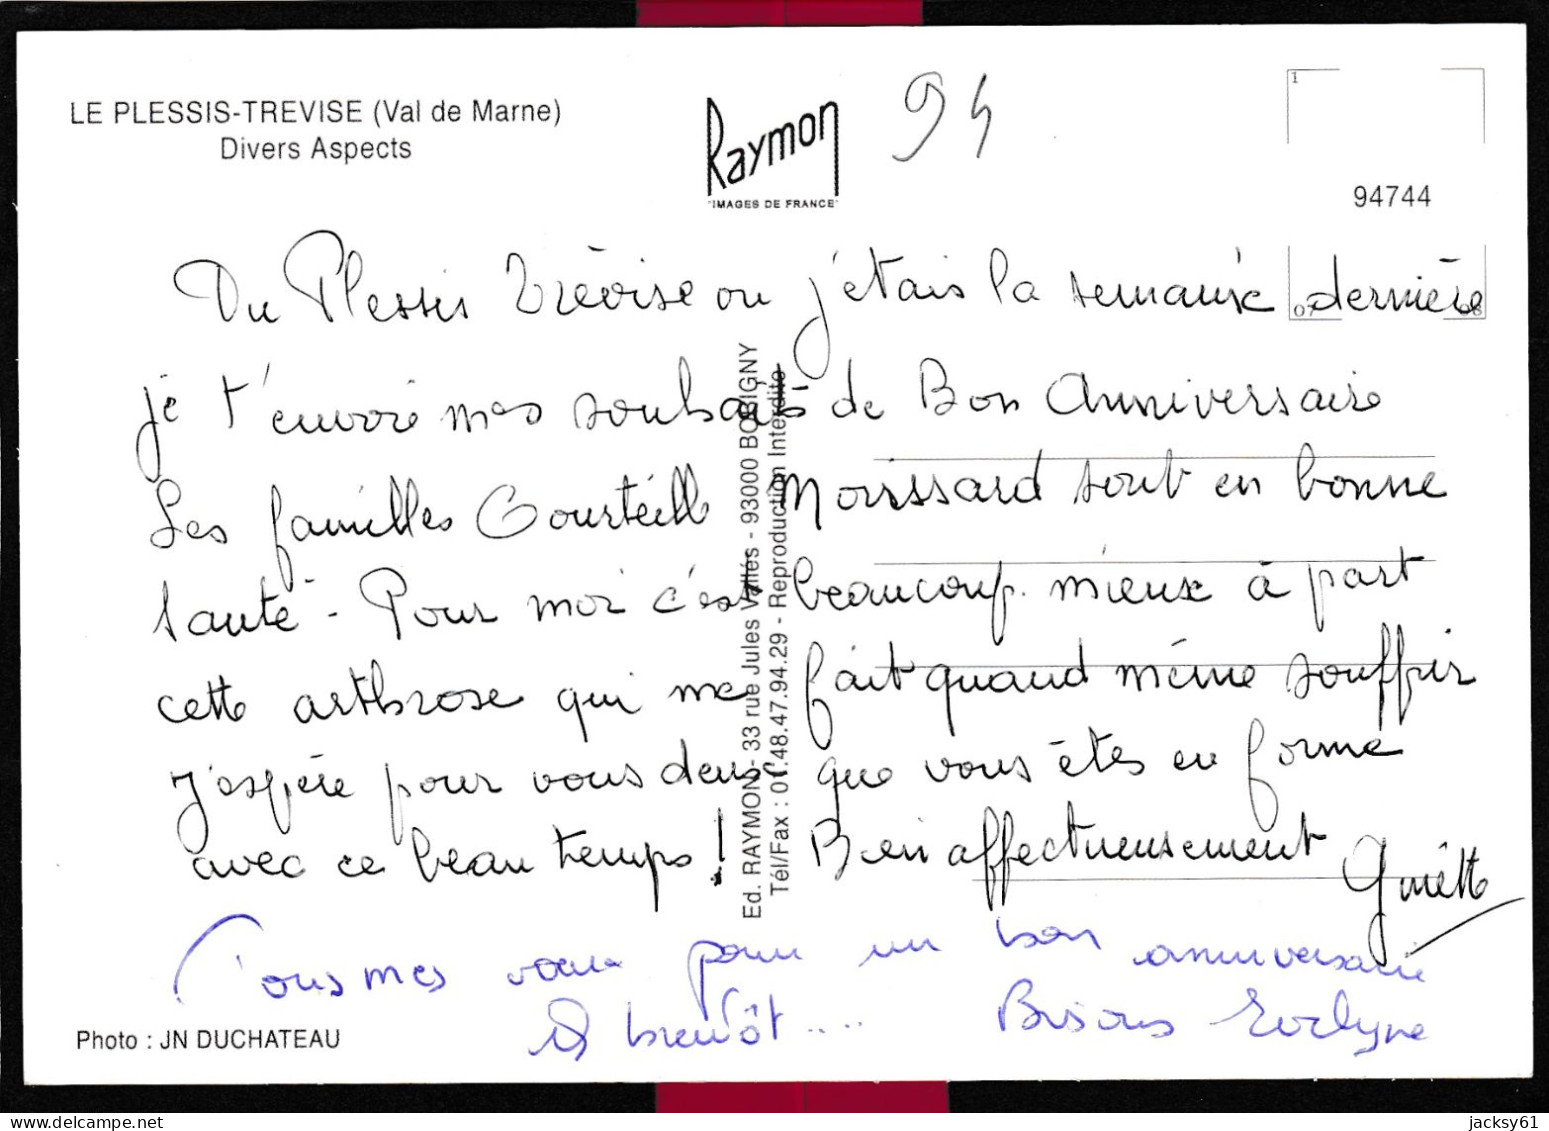 LE PLESSIS-TREVISE (Val de Marne)
Divers Aspects
Raymon
"IMAGES DE FRANCE"
94
1
94744
07 08
Du Plessis Trévise ou j'étais la semaine dernière
je t'envoie mes souhaits de Bon Anniversaire
Les familles Courteille Moissard sont en bonne
santé - Pour moi c'est beaucoup mieux à part
cette arthrose qui me fait quand même souffrir
J'espère pour vous deux que vous êtes en forme
avec ce beau temps! Bien affectueusement
Tous mes voeux pour un bon anniversaire
A bientôt.... Bisous Evelyne
Ed. RAYMON - 33 rue Jules Vallés - 93000 BOBIGNY
Tél/Fax : 01.48.47.94.29 - Reproduction Interdite
Photo : JN DUCHATEAU
jacksy61